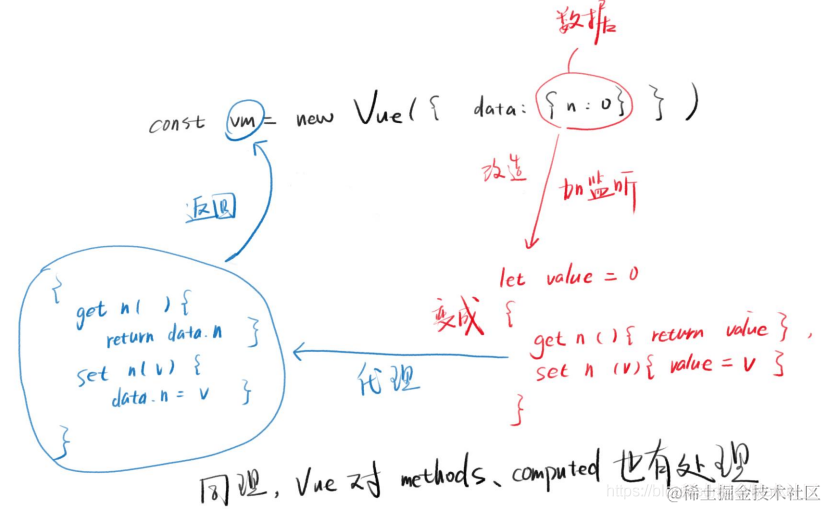 数据
const vm = new Vue({ data: {n:0} })
改造
加监听
返回
let value = 0
变成
{
get n(){ return value },
set n(v){ value = v }
}
代理
{
get n( ){
return data.n }
set n(v) {
data.n = v }
}
同理, Vue 对 methods、computed 也有处理
@稀土掘金技术社区